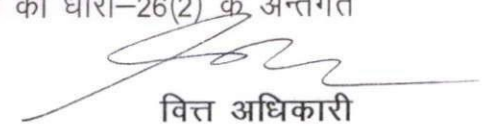 की धारा–26(2) के अन्तर्गत
वित्त अधिकारी